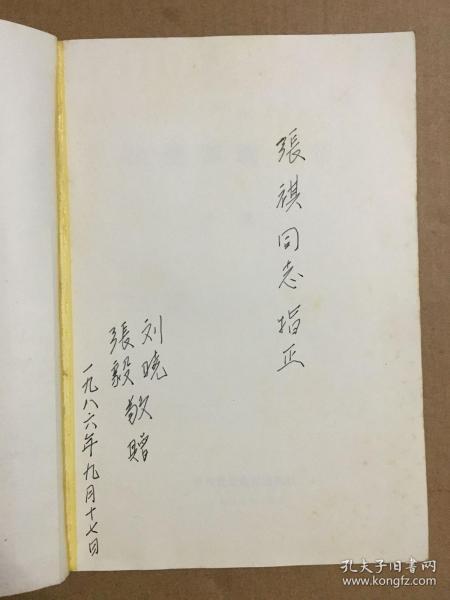 張祺同志指正
刘晓
張毅敬贈
一九八六年九月十七日
孔夫子旧书网
www.kongfz.com